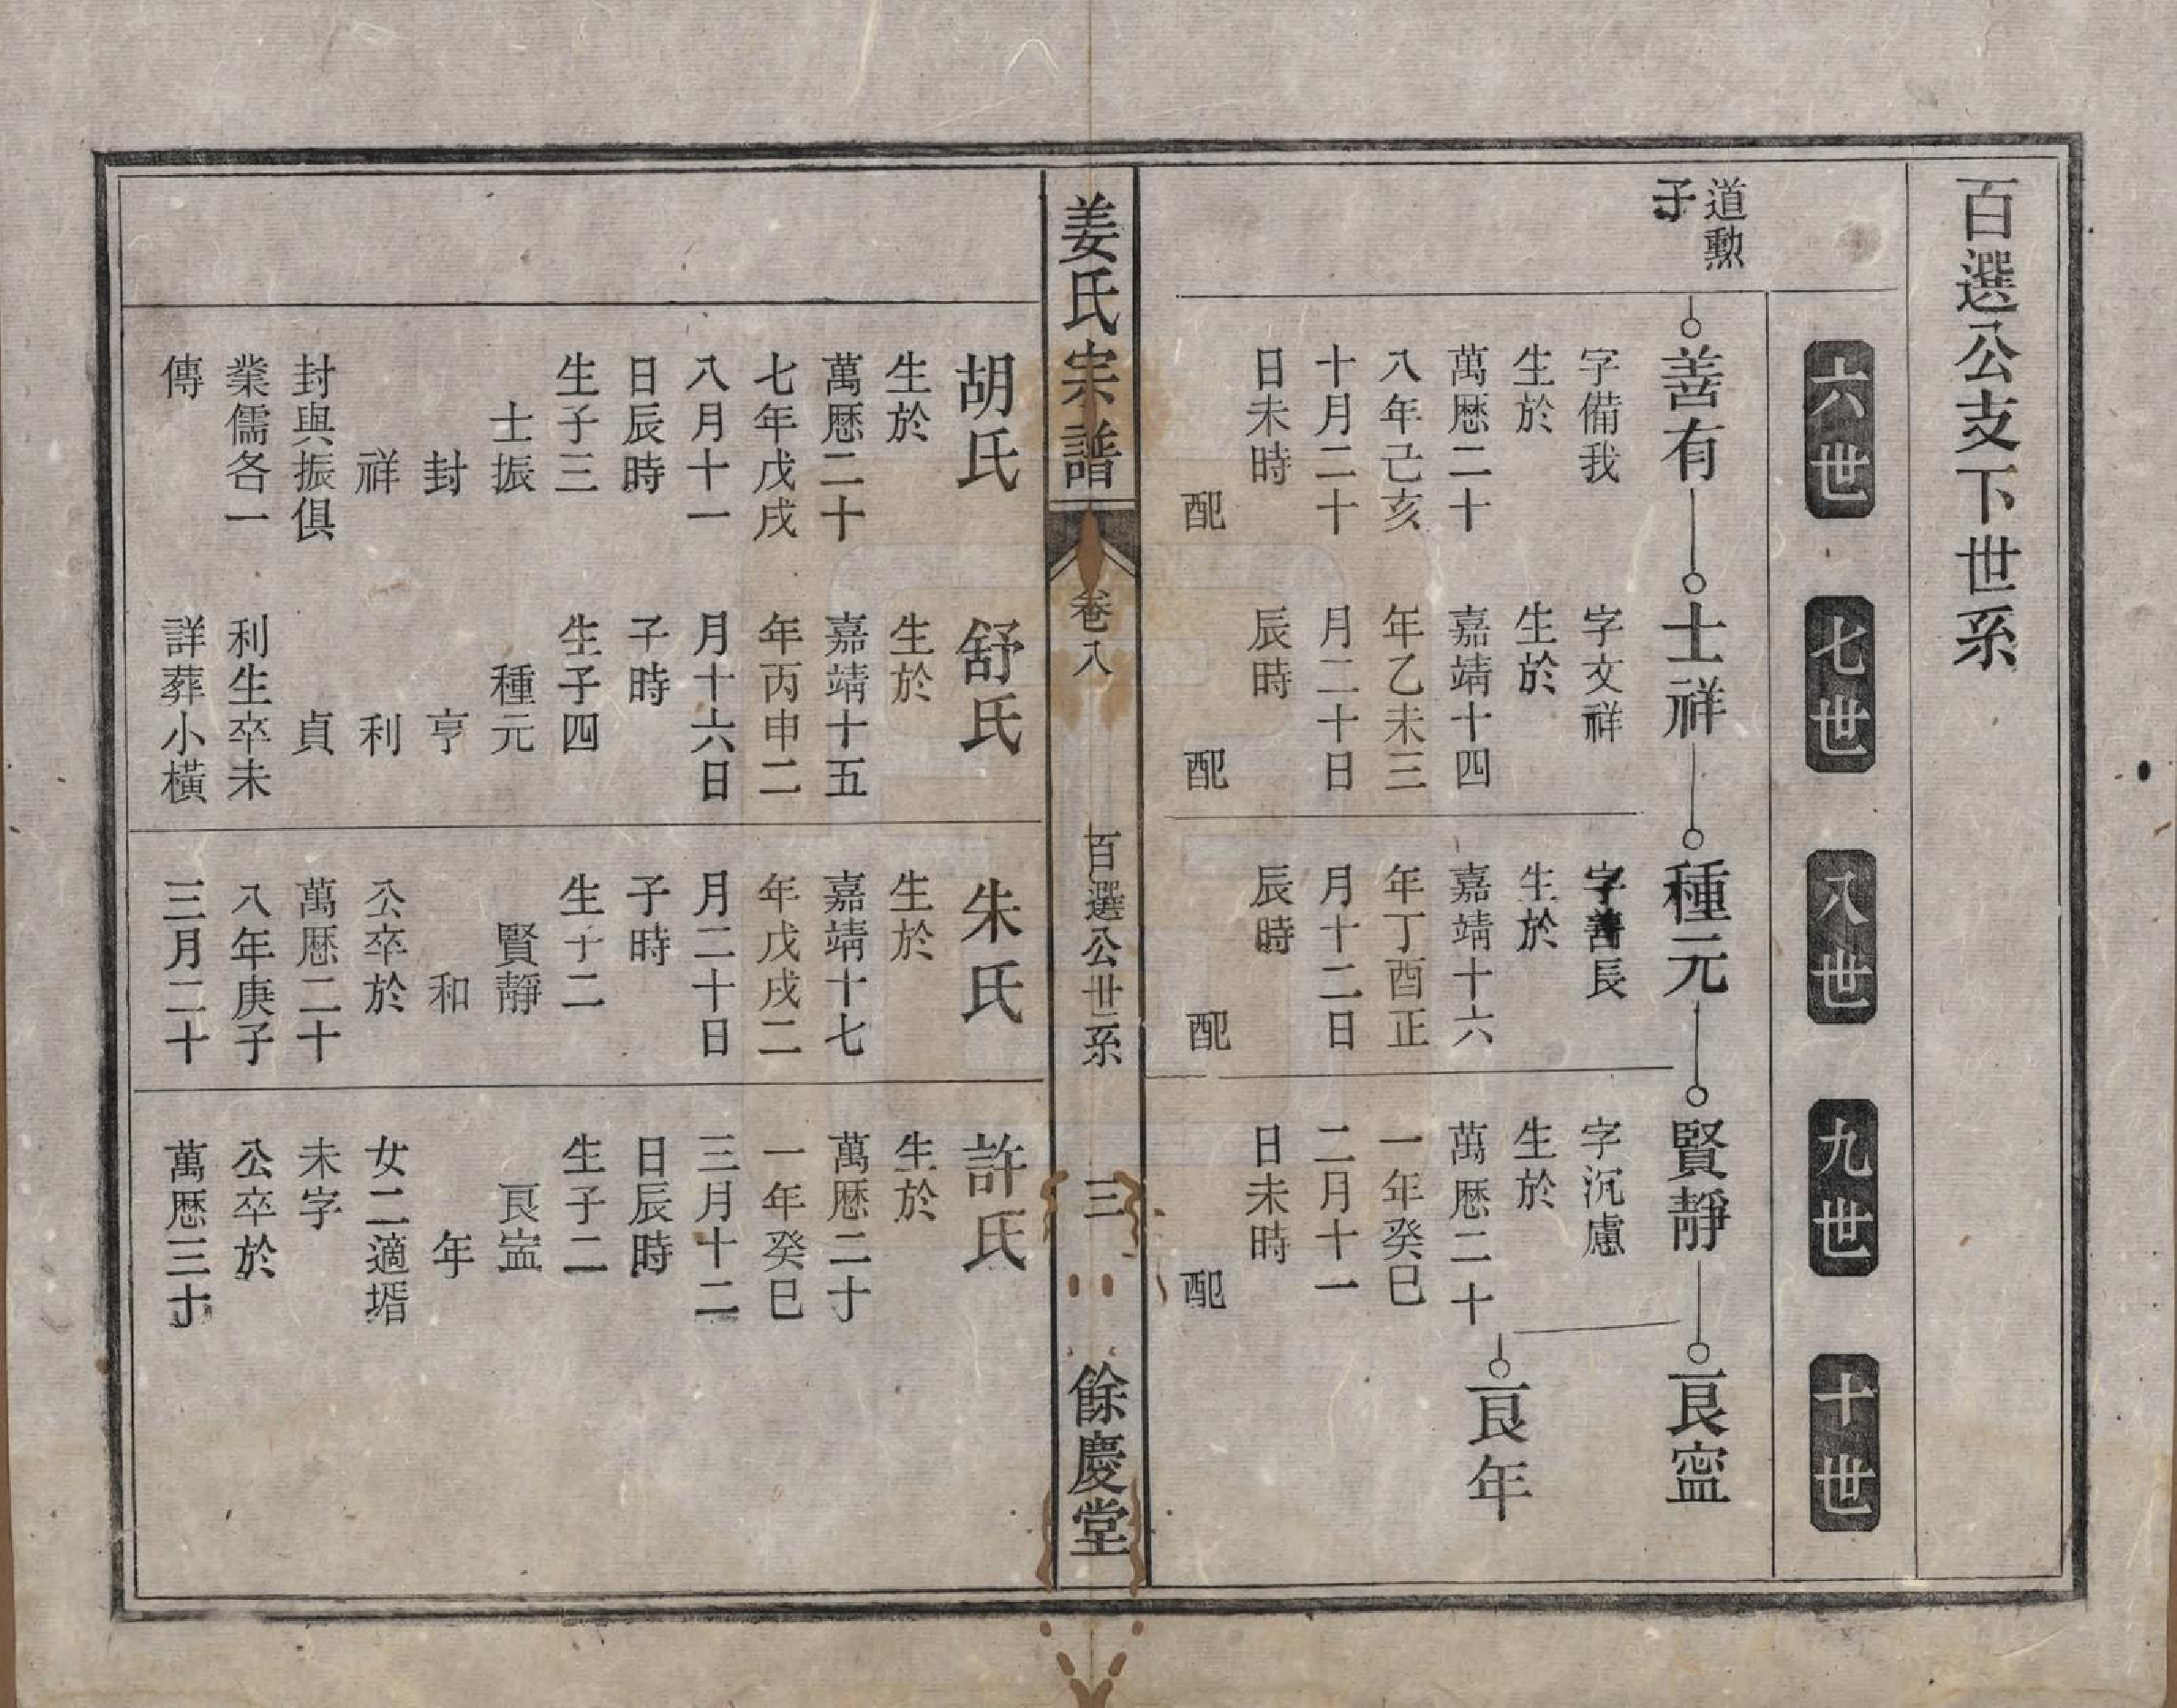 百選公支下世系
六世
七世
八世
九世
十世
道勲
子
善有
士祥
種元
賢靜
良寍
良年
字備我
生於
萬厯二十
八年己亥
十月二十
日未時
配
字文祥
生於
嘉靖十四
年乙未三
月二十日
辰時
配
字善長
生於
嘉靖十六
年丁酉正
月十二日
辰時
配
字沉慮
生於
萬厯二十
一年癸巳
二月十一
日未時
配
姜氏宗譜
卷八
百選公世系
三
餘慶堂
胡氏
生於
萬厯二十
七年戊戌
八月十一
日辰時
生子三
士振
封
祥
封與振俱
業儒各一
傳
舒氏
生於
嘉靖十五
年丙申二
月十六日
子時
生子四
種元
亨
利
貞
利生卒未
詳葬小橫
朱氏
生於
嘉靖十七
年戊戌二
月二十日
子時
生子二
賢靜
和
公卒於
萬厯二十
八年庚子
三月二十
許氏
生於
萬厯二十
一年癸巳
三月十二
日辰時
生子二
良寍
年
女二適壻
未字
公卒於
萬厯三十